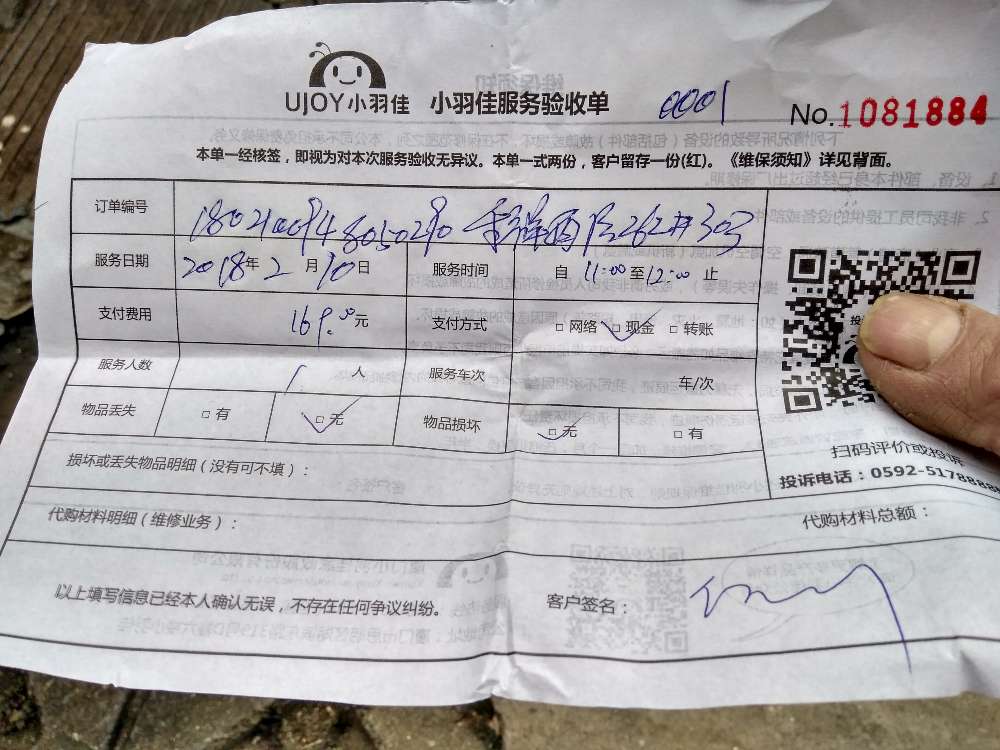 UJOY小羽佳 小羽佳服务验收单 0001 No.1081884
本单一经核签，即视为对本次服务验收无异议。本单一式两份，客户留存一份(红)。《维保须知》详见背面。
订单编号
262#303
服务日期 2018年2月10日 服务时间 自11:00至12:00止
支付费用 169.00元 支付方式 □网络 □现金 □转账
服务人数 1人 服务车次 车/次
物品丢失 □有 □无 物品损坏 □无 □有
扫码评价或投诉
投诉电话：0592-5178888
损坏或丢失物品明细（没有可不填）：
代购材料明细（维修业务）： 代购材料总额：
以上填写信息已经本人确认无误，不存在任何争议纠纷。 客户签名：